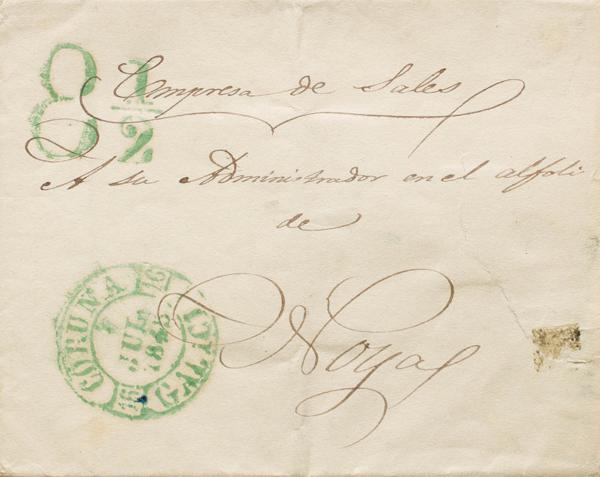 8 1/2
Empresa de Sales
A su Administrador en el alfolí
de
Noya
CORUÑA
JUL
GALICI